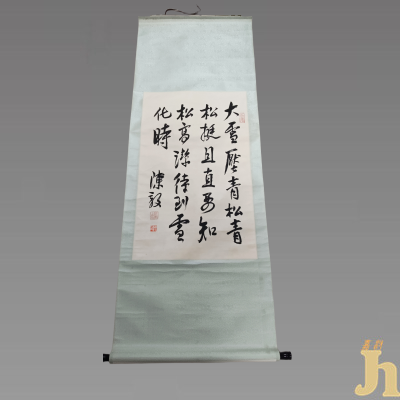 大雪壓青松青
松挺且直要知
松高潔待到雪
化時
陳毅
Jh